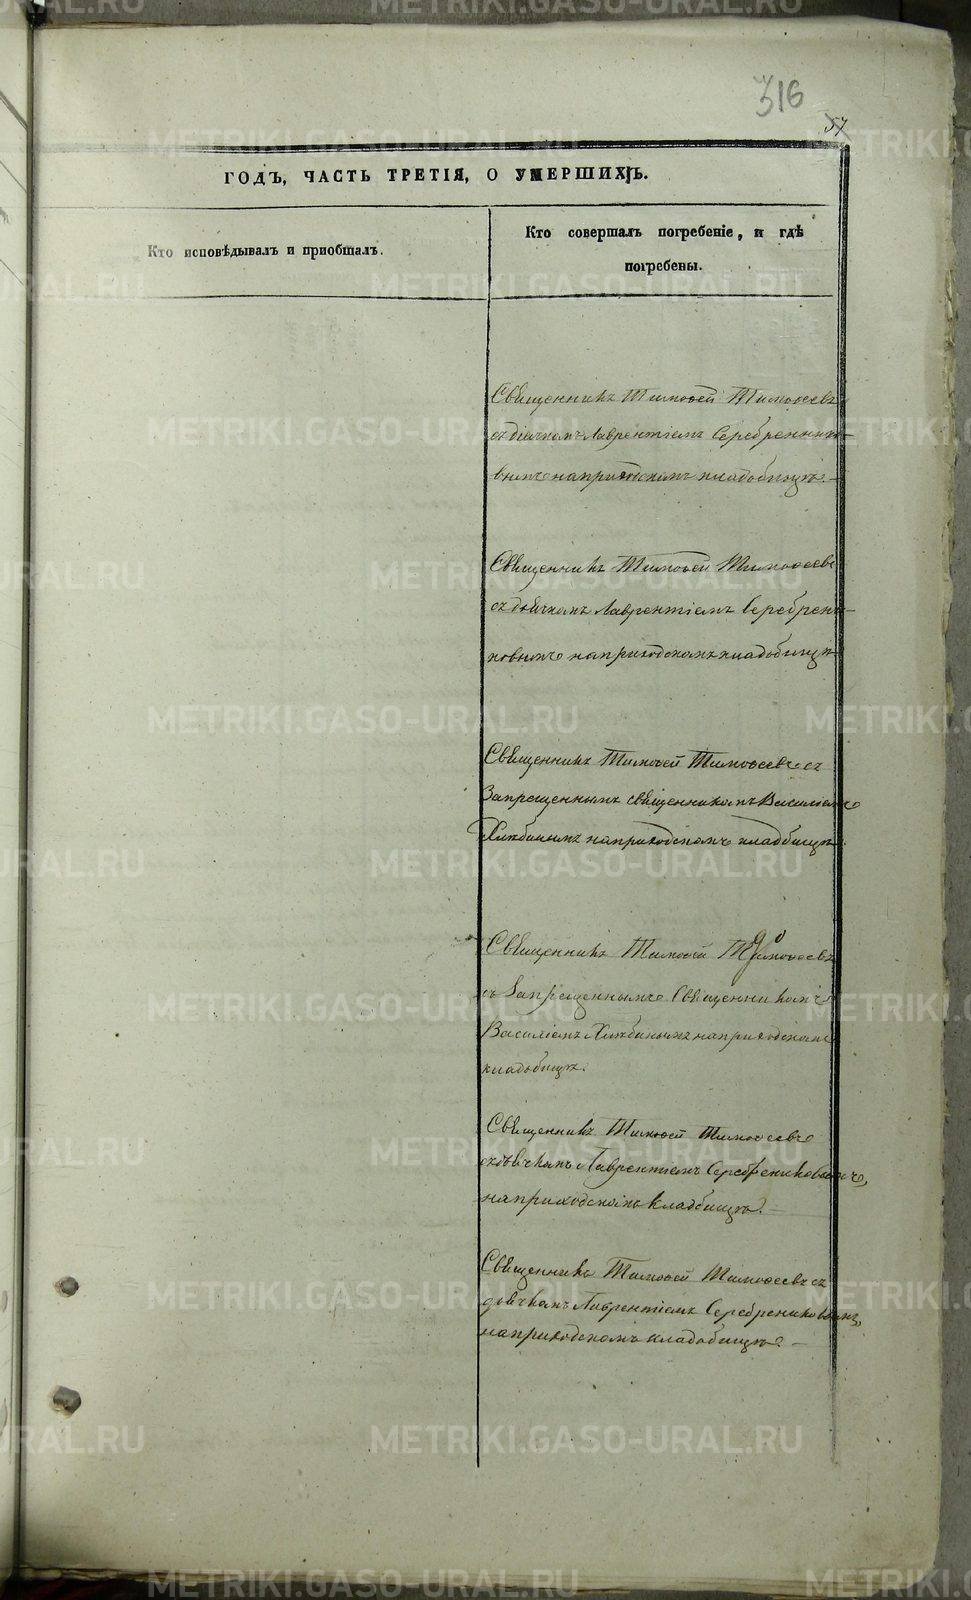 316
57
ГОДЪ, ЧАСТЬ ТРЕТІЯ, О УМЕРШИХЪ.
Кто исповѣдывалъ и пріобщалъ.
Кто совершалъ погребеніе, и гдѣ
погребены.
Священникъ Тимоѳей Тимоѳеевъ
съ дьячкомъ Лаврентіемъ Серебрен­нико-
вымъ на приходскомъ кладбищѣ.
Священникъ Тимоѳей Тимоѳеевъ
съ дьячкомъ Лаврентіемъ Серебрени-
ковымъ на приходскомъ кладбищѣ
Священникъ Тимоѳей Тимоѳеевъ съ
Запрещеннымъ священникомъ Василіемъ
Хлѣбинымъ на приходскомъ кладбищѣ.
Священникъ Тимоѳей Тимоѳеевъ
съ Запрещеннымъ Священникомъ
Василіемъ Хлѣбинымъ на приходскомъ
кладбищѣ.
Священникъ Тимоѳей Тимоѳеевъ
съ дьячкомъ Лаврентіемъ Серебрениковымъ,
на приходскомъ кладбищѣ.
Священникъ Тимоѳей Тимоѳеевъ съ
дьячкомъ Лаврентіемъ Серебрениковымъ,
на приходскомъ кладбищѣ.
METRIKI.GASO-URAL.RU